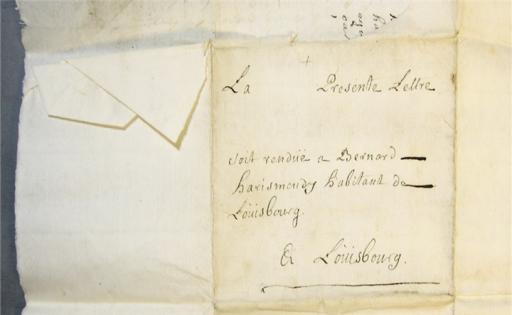 La Presente Lettre
soit rendüe a Bernard
harismendy habitant de
Loüisbourg.
A Loüisbourg.